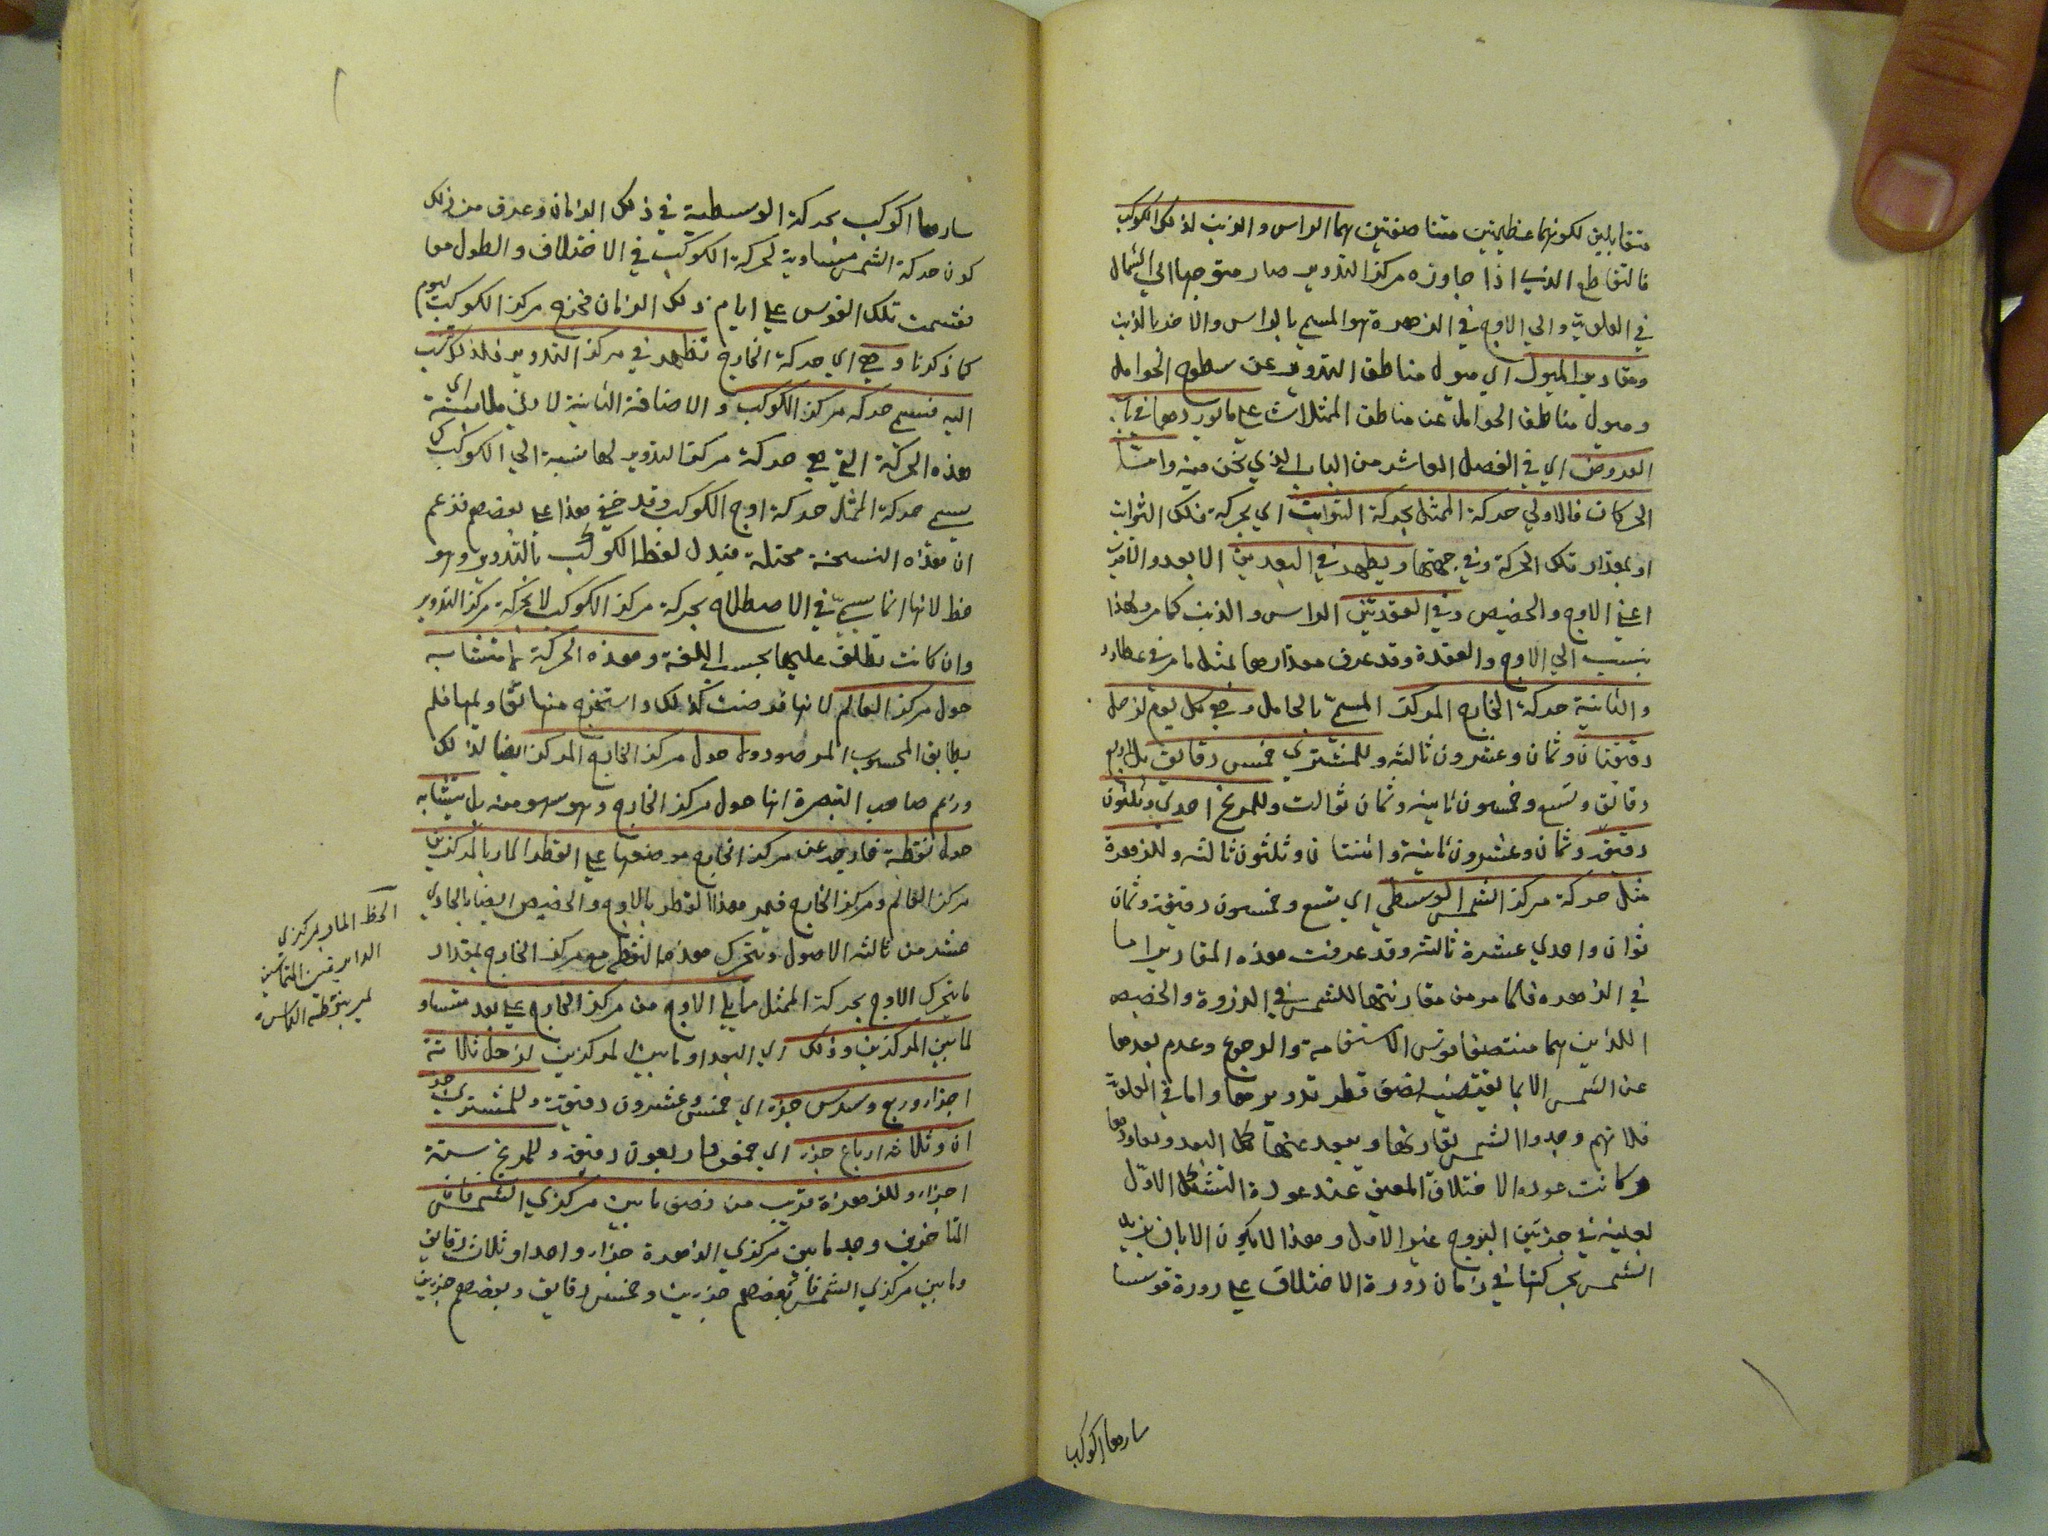 متقابلين لكونهما عظيمتين متناصفتين هما الراس والذنب لذلك الكوكب
فالتقاطع الذي اذا جاوزه مركز التدوير صار متوجها الي الشمال
في العلوية والي الاوج في الزهرة هو المسمي بالراس والاخر بالذنب
ومقادير الميول اي ميول مناطق التدوير عن سطوح الحوامل
وميول مناطق الحوامل عن مناطق الممثلات علي ما نوردها في باب
العروض اي في الفصل العاشر من الباب الذي نحن فيه واما
الحركات فالاولي حركة الممثل بحركة الثوابت اي بحركة فلك الثوابت
او بمقدار تلك الحركة وفي جهتها ويظهر في البعدين الابعد والاقرب
اعني الاوج والحضيض وفي العقدتين الراس والذنب كما مر ولهذا
ينسب الي الاوج والعقدة وقد عرف مقدارها بمثل ما مر في عطارد
والثانية حركة الخارج المركز المسمي بالحامل وهي كل يوم لزحل
دقيقتان وثمان وعشرون ثالثه وللمشتري خمس دقايق بل اربع
دقايق وتسع وخمسون ثانيه وثمان ثوالث وللمريخ احدي وثلثون
دقيقه وثمان وعشرون ثانية واثنتان وثلثون ثالثه وللزهرة
مثل حركة مركز الشمس الوسطي اي تسع وخمسون دقيقة وثمان
ثوان واحدي عشرة ثالثه وقد عرفت هذه المقادير اما
في الزهره فلما مر من مقارنتها للشمس في الذروة والحضيض
اللذين هما منتصفا قوس الاستقامة والرجوع وعدم بعدها
عن الشمس الا بما يقتضيه نصف قطر تدويرها واما في العلوية
فلانهم وجدوا الشمس تقارنها ويبعد عنها كل البعد وتعاودها
وكانت عوده الاختلاف المعين عند عودة التشكل الاول
بعينه في جزئين البروج غير الاول وهذا لا يكون الا بان يزيد
الشمس بحركتها في زمان دورة الاختلاف علي دورة قوسا
سارها الكوكب
سارها الكوكب بحركة الوسطية في ذلك الزمان وعرف من ذلك
كون حركة الشمس مساوية لحركة الكوكب في الاختلاف والطول معا
فقسمت تلك القوس علي ايام ذلك الزمان فخرج مركز الكوكب ليوم
كما ذكرنا وهي اي حركة الخارج تظهر في مركز التدوير فلذلك نسب
اليه فتسمي حركة مركز الكوكب والاضافة الثانية لادني ملابسة اي
هذه الحركة التي هي حركة مركز التدوير لها نسبة الي الكوكب كما
يسمي حركة الممثل حركة اوج الكوكب وقد خفي هذا علي بعضهم فزعم
ان هذه النسخة مختلة فبدل لفظ الكوكب بالتدوير وهو
خطا لانها انما سميت في الاصطلاح بحركة مركز الكوكب لا بحركة مركز التدوير
وان كانت يطلق عليها بحسب اللغة وهذه الحركة لا متشابه
حول مركز العالم لانها فرضت كذلك واستخرج منها تقاويمها فلم
يطابق المحسوب المرصود ولا حول مركز الخارج المركز ايضا لذلك
وزعم صاحب التبصرة انها حول مركز الخارج وهو سهو منه بل يتشابه
حول نقطة خارجه عن مركز الخارج موضعها علي القطر المار بالمركزين
مركز العالم ومركز الخارج فيمر هذا القطر بالاوج والحضيض ايضا بالحادي
عشر من ثالثه الاصول ويتحرك هذه النقطة مع مركز الخارج بمقدار
ما يتحرك الاوج بحركة الممثل مما يلي الاوج من مركز الخارج علي بعد مساو
لما بين المركزين وذلك اي البعد او ما بين المركزين لزحل ثلاثة
اجزا وربع وسدس جزء اي خمس وعشرون دقيقة وللمشتري جز
ان وثلاثه ارباع جزء اي خمس واربعون دقيقه وللمريخ ستة
اجزا وللزهرة قريب من نصف ما بين مركزي الشمس فان
المتاخرين وجد ما بين مركزي الزهرة جزا واحدا وثلاث دقايق
وما بين مركزي الشمس فان بعضهم جزئين وخمس دقايق وبعضهم جزئين
الخط المار بمركزي
الدايرتين المتماستين
يمر بنقطه التماس